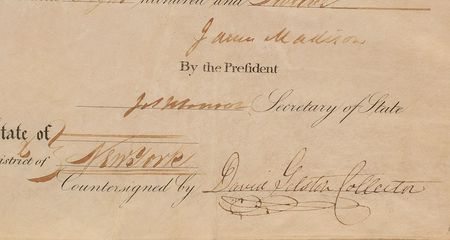 hundred and
James Madison
By the Preſident
Jas Monroe Secretary of State
State of
District of New York
Countersigned by David Gelston Collector